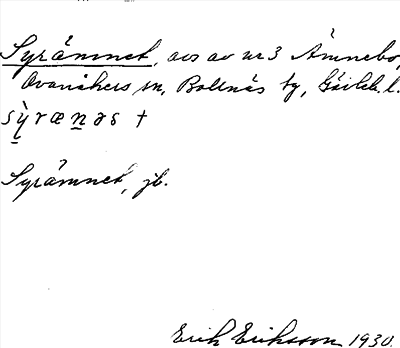 Syrämnet, avs av nr 3 Ämnebo,
Ovanåkers sn, Bollnäs tg, Gävleb. l.
sỳrænəs †
Syrämnet, jb.
Erik Eriksson 1930.